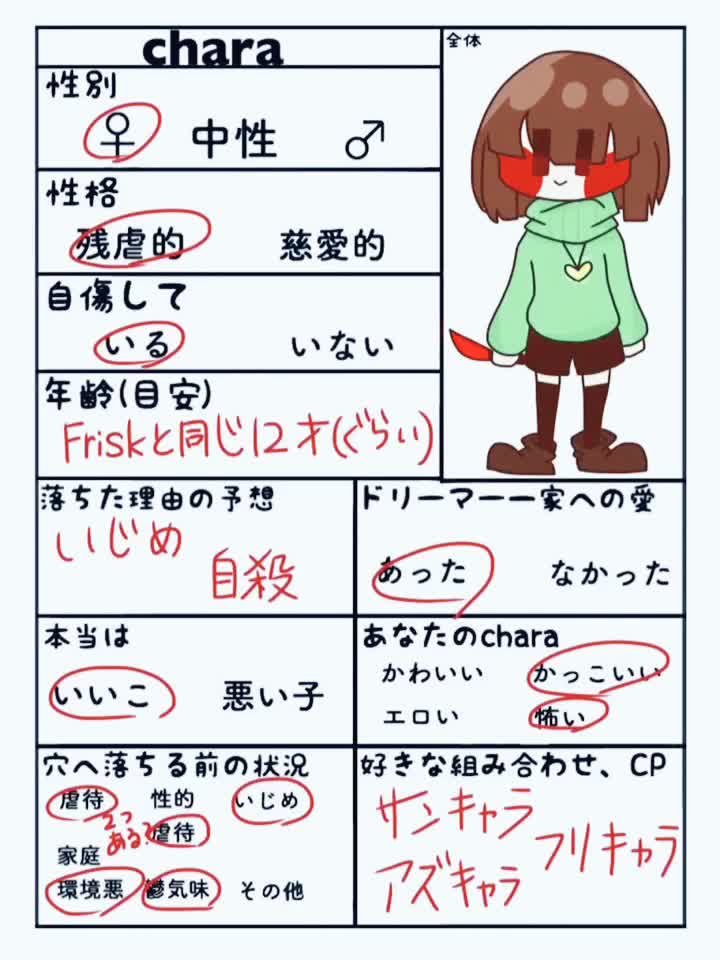 chara
全体
性別
♀ 中性 ♂
性格
残虐的 慈愛的
自傷して
いる いない
年齢(目安)
Friskと同じ12才(ぐらい)
落ちた理由の予想
いじめ
自殺
ドリーマー一家への愛
あった なかった
本当は
いいこ 悪い子
あなたのchara
かわいい かっこいい
エロい 怖い
穴へ落ちる前の状況
虐待 性的 いじめ
2つ
ある? 虐待
家庭
環境悪 鬱気味 その他
好きな組み合わせ、CP
サンキャラ
フリキャラ
アズキャラ